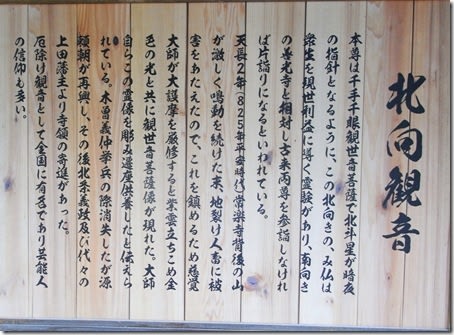 北向観音
本尊は千手千眼観世音菩薩で北斗星が暗夜
の指針となるように、この北向きの、み仏は
衆生を現世利益に導く霊験があり、南向き
の善光寺と相対し古来両尊を参詣しなけれ
ば片詣りになるといわれている。
天長2年（825年平安時代）常楽寺背後の山
が激しく鳴動を続けた末、地裂け人畜に被
害をあたえたので、これを鎮めるため慈覚
大師が大護摩を厳修すると紫雲立ちこめ金
色の光と共に観世音菩薩像が現れた。大師
自らこの霊像を彫み遷座供養したと伝えら
れている。木曽義仲挙兵の際消失したが源
頼朝が再興し、その後北条義政及び代々の
上田藩主より寺領の寄進があった。
厄除け観音として全国に有名であり芸能人
の信仰も多い。